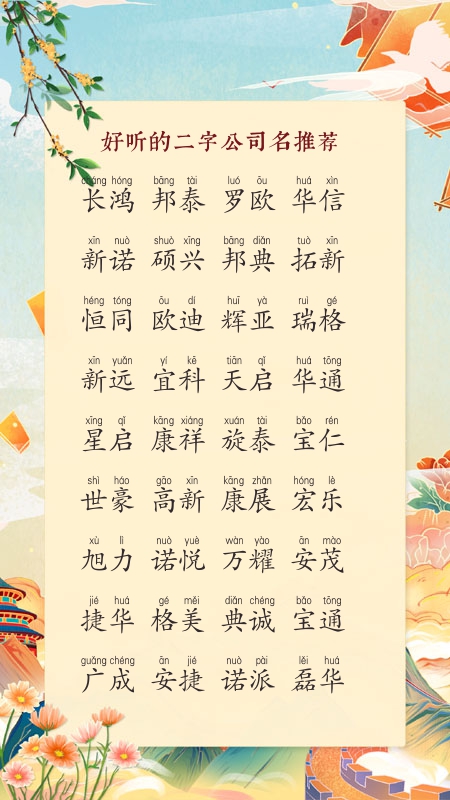 好听的二字公司名推荐
cháng hóng bāng tài luó ōu huá xìn
长鸿 邦泰 罗欧 华信
xīn nuò shuò xīng bāng diǎn tuò xīn
新诺 硕兴 邦典 拓新
héng tóng ōu dí huī yà ruì gé
恒同 欧迪 辉亚 瑞格
xīn yuǎn yí kē tiān qǐ huá tōng
新远 宜科 天启 华通
xīng qǐ kāng xiáng xuán tài bǎo rén
星启 康祥 旋泰 宝仁
shì háo gāo xīn kāng zhǎn hóng lè
世豪 高新 康展 宏乐
xù lì nuò yuè wàn yào ān mào
旭力 诺悦 万耀 安茂
jié huá gé měi diǎn chéng bǎo tōng
捷华 格美 典诚 宝通
guǎng chéng ān jié nuò pài lěi huá
广成 安捷 诺派 磊华